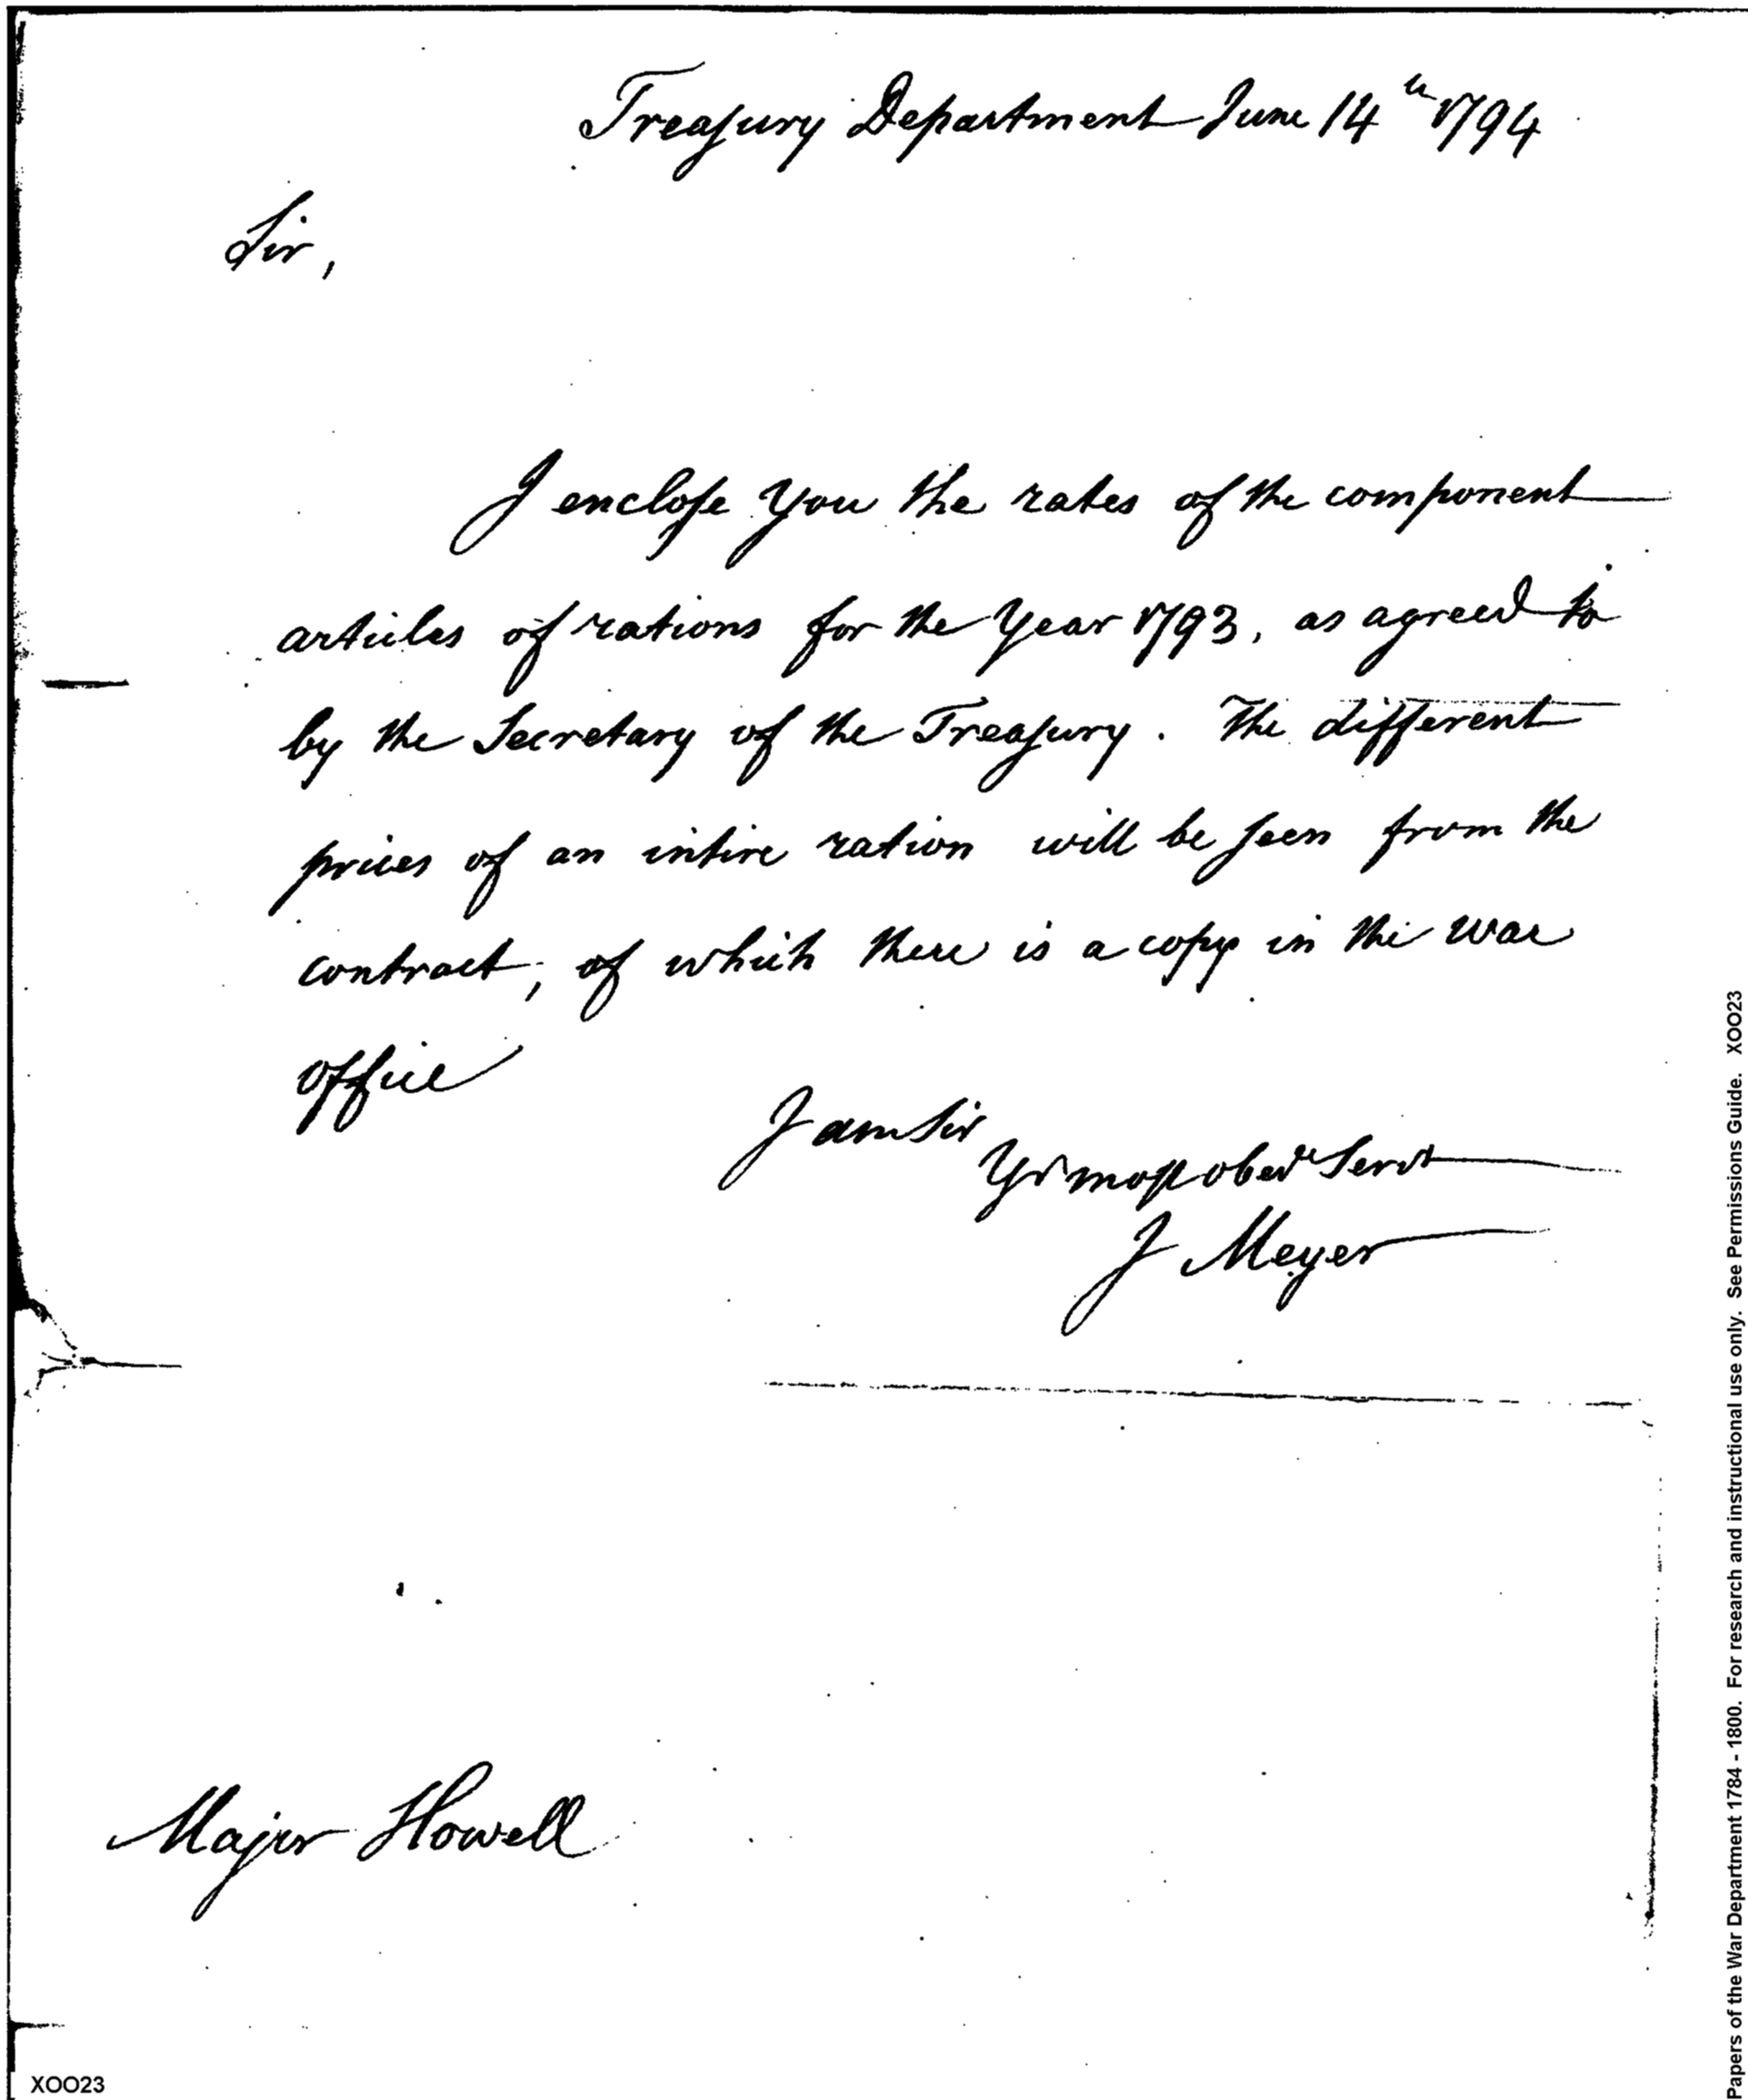 Treaſury Department June 14th 1794
Sir,
I encloſe you the rates of the component
articles of rations for the Year 1793, as agreed to
by the Secretary of the Treaſury. The different
prices of an intire ration will be ſeen from the
contract, of which there is a copy in the War
office
I am Sir
Yr moſt obed Servt
J Meyer
Major Howell
XOO23
Papers of the War Department 1784 - 1800. For research and instructional use only. See Permissions Guide. XOO23